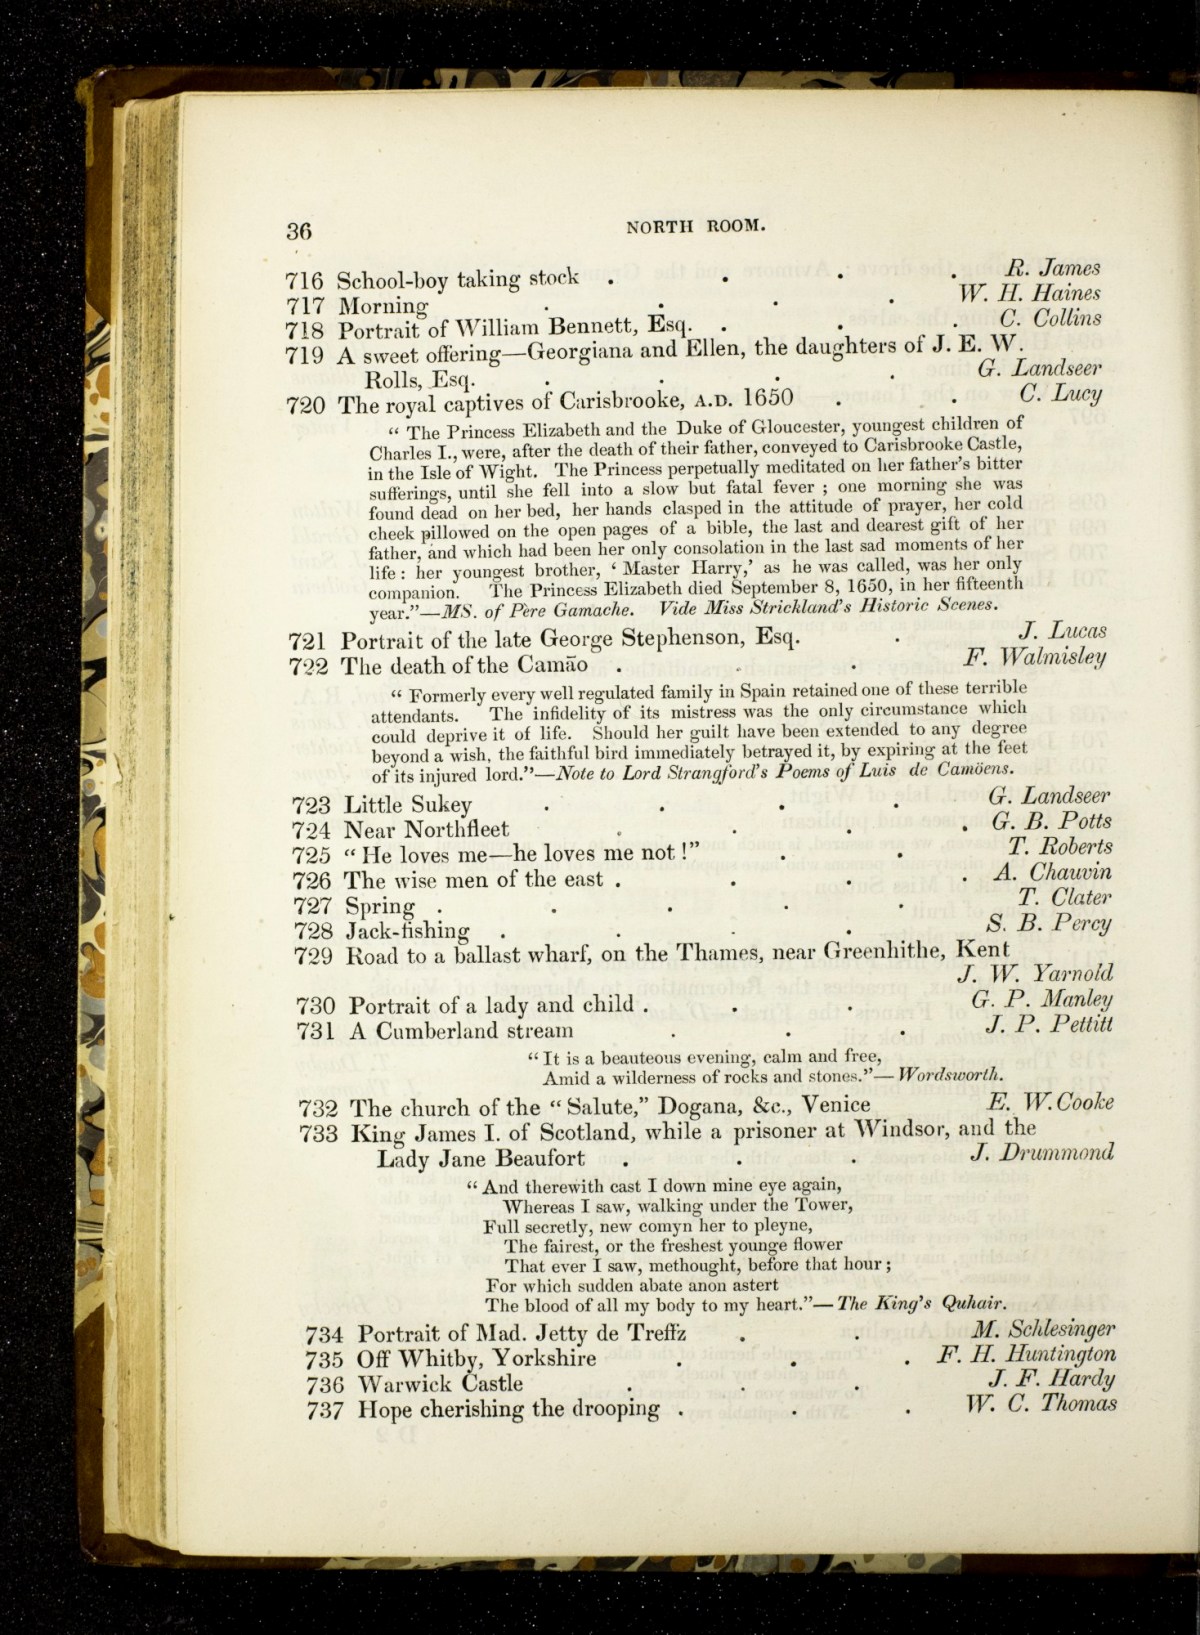 36 NORTH ROOM.
716 School-boy taking stock . . . . R. James
717 Morning . . . . W. H. Haines
718 Portrait of William Bennett, Esq. . . . C. Collins
719 A sweet offering—Georgiana and Ellen, the daughters of J. E. W.
Rolls, Esq. . . . . G. Landseer
720 The royal captives of Carisbrooke, A.D. 1650 . . C. Lucy
“ The Princess Elizabeth and the Duke of Gloucester, youngest children of
Charles I., were, after the death of their father, conveyed to Carisbrooke Castle,
in the Isle of Wight. The Princess perpetually meditated on her father’s bitter
sufferings, until she fell into a slow but fatal fever ; one morning she was
found dead on her bed, her hands clasped in the attitude of prayer, her cold
cheek pillowed on the open pages of a bible, the last and dearest gift of her
father, and which had been her only consolation in the last sad moments of her
life : her youngest brother, ‘ Master Harry,’ as he was called, was her only
companion. The Princess Elizabeth died September 8, 1650, in her fifteenth
year.”—MS. of Père Gamache. Vide Miss Strickland’s Historic Scenes.
721 Portrait of the late George Stephenson, Esq. . J. Lucas
722 The death of the Camão . . . F. Walmisley
“ Formerly every well regulated family in Spain retained one of these terrible
attendants. The infidelity of its mistress was the only circumstance which
could deprive it of life. Should her guilt have been extended to any degree
beyond a wish, the faithful bird immediately betrayed it, by expiring at the feet
of its injured lord.”—Note to Lord Strangford’s Poems of Luis de Camöens.
723 Little Sukey . . . . G. Landseer
724 Near Northfleet . . . . G. B. Potts
725 “ He loves me—he loves me not !” . . T. Roberts
726 The wise men of the east . . . . A. Chauvin
727 Spring . . . . . T. Clater
728 Jack-fishing . . . . S. B. Percy
729 Road to a ballast wharf, on the Thames, near Greenhithe, Kent
J. W. Yarnold
730 Portrait of a lady and child . . . G. P. Manley
731 A Cumberland stream . . . J. P. Pettitt
“ It is a beauteous evening, calm and free,
Amid a wilderness of rocks and stones.”—Wordsworth.
732 The church of the “ Salute,” Dogana, &c., Venice E. W. Cooke
733 King James I. of Scotland, while a prisoner at Windsor, and the
Lady Jane Beaufort . . . J. Drummond
“ And therewith cast I down mine eye again,
Whereas I saw, walking under the Tower,
Full secretly, new comyn her to pleyne,
The fairest, or the freshest younge flower
That ever I saw, methought, before that hour ;
For which sudden abate anon astert
The blood of all my body to my heart.”—The King’s Quhair.
734 Portrait of Mad. Jetty de Treffz . . M. Schlesinger
735 Off Whitby, Yorkshire . . . F. H. Huntington
736 Warwick Castle . . . J. F. Hardy
737 Hope cherishing the drooping . . . W. C. Thomas